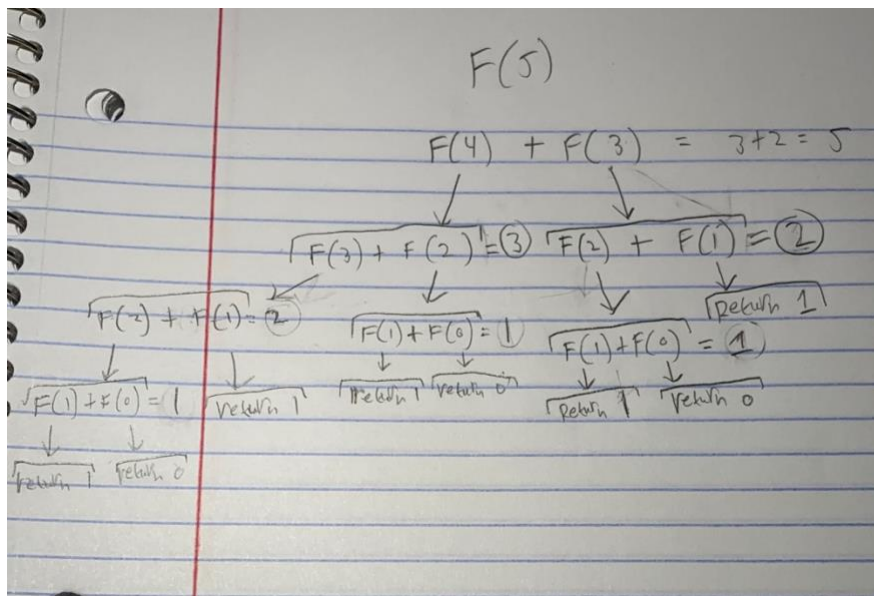 F(5)
F(4) + F(3) = 3+2 = 5
F(3) + F(2) = 3 F(2) + F(1) = 2
F(2) + F(1) = 2 F(1) + F(0) = 1 F(1) + F(0) = 1 return 1
F(1) + F(0) = 1 return 1 return 1 return 0 return 1 return 0
return 1 return 0